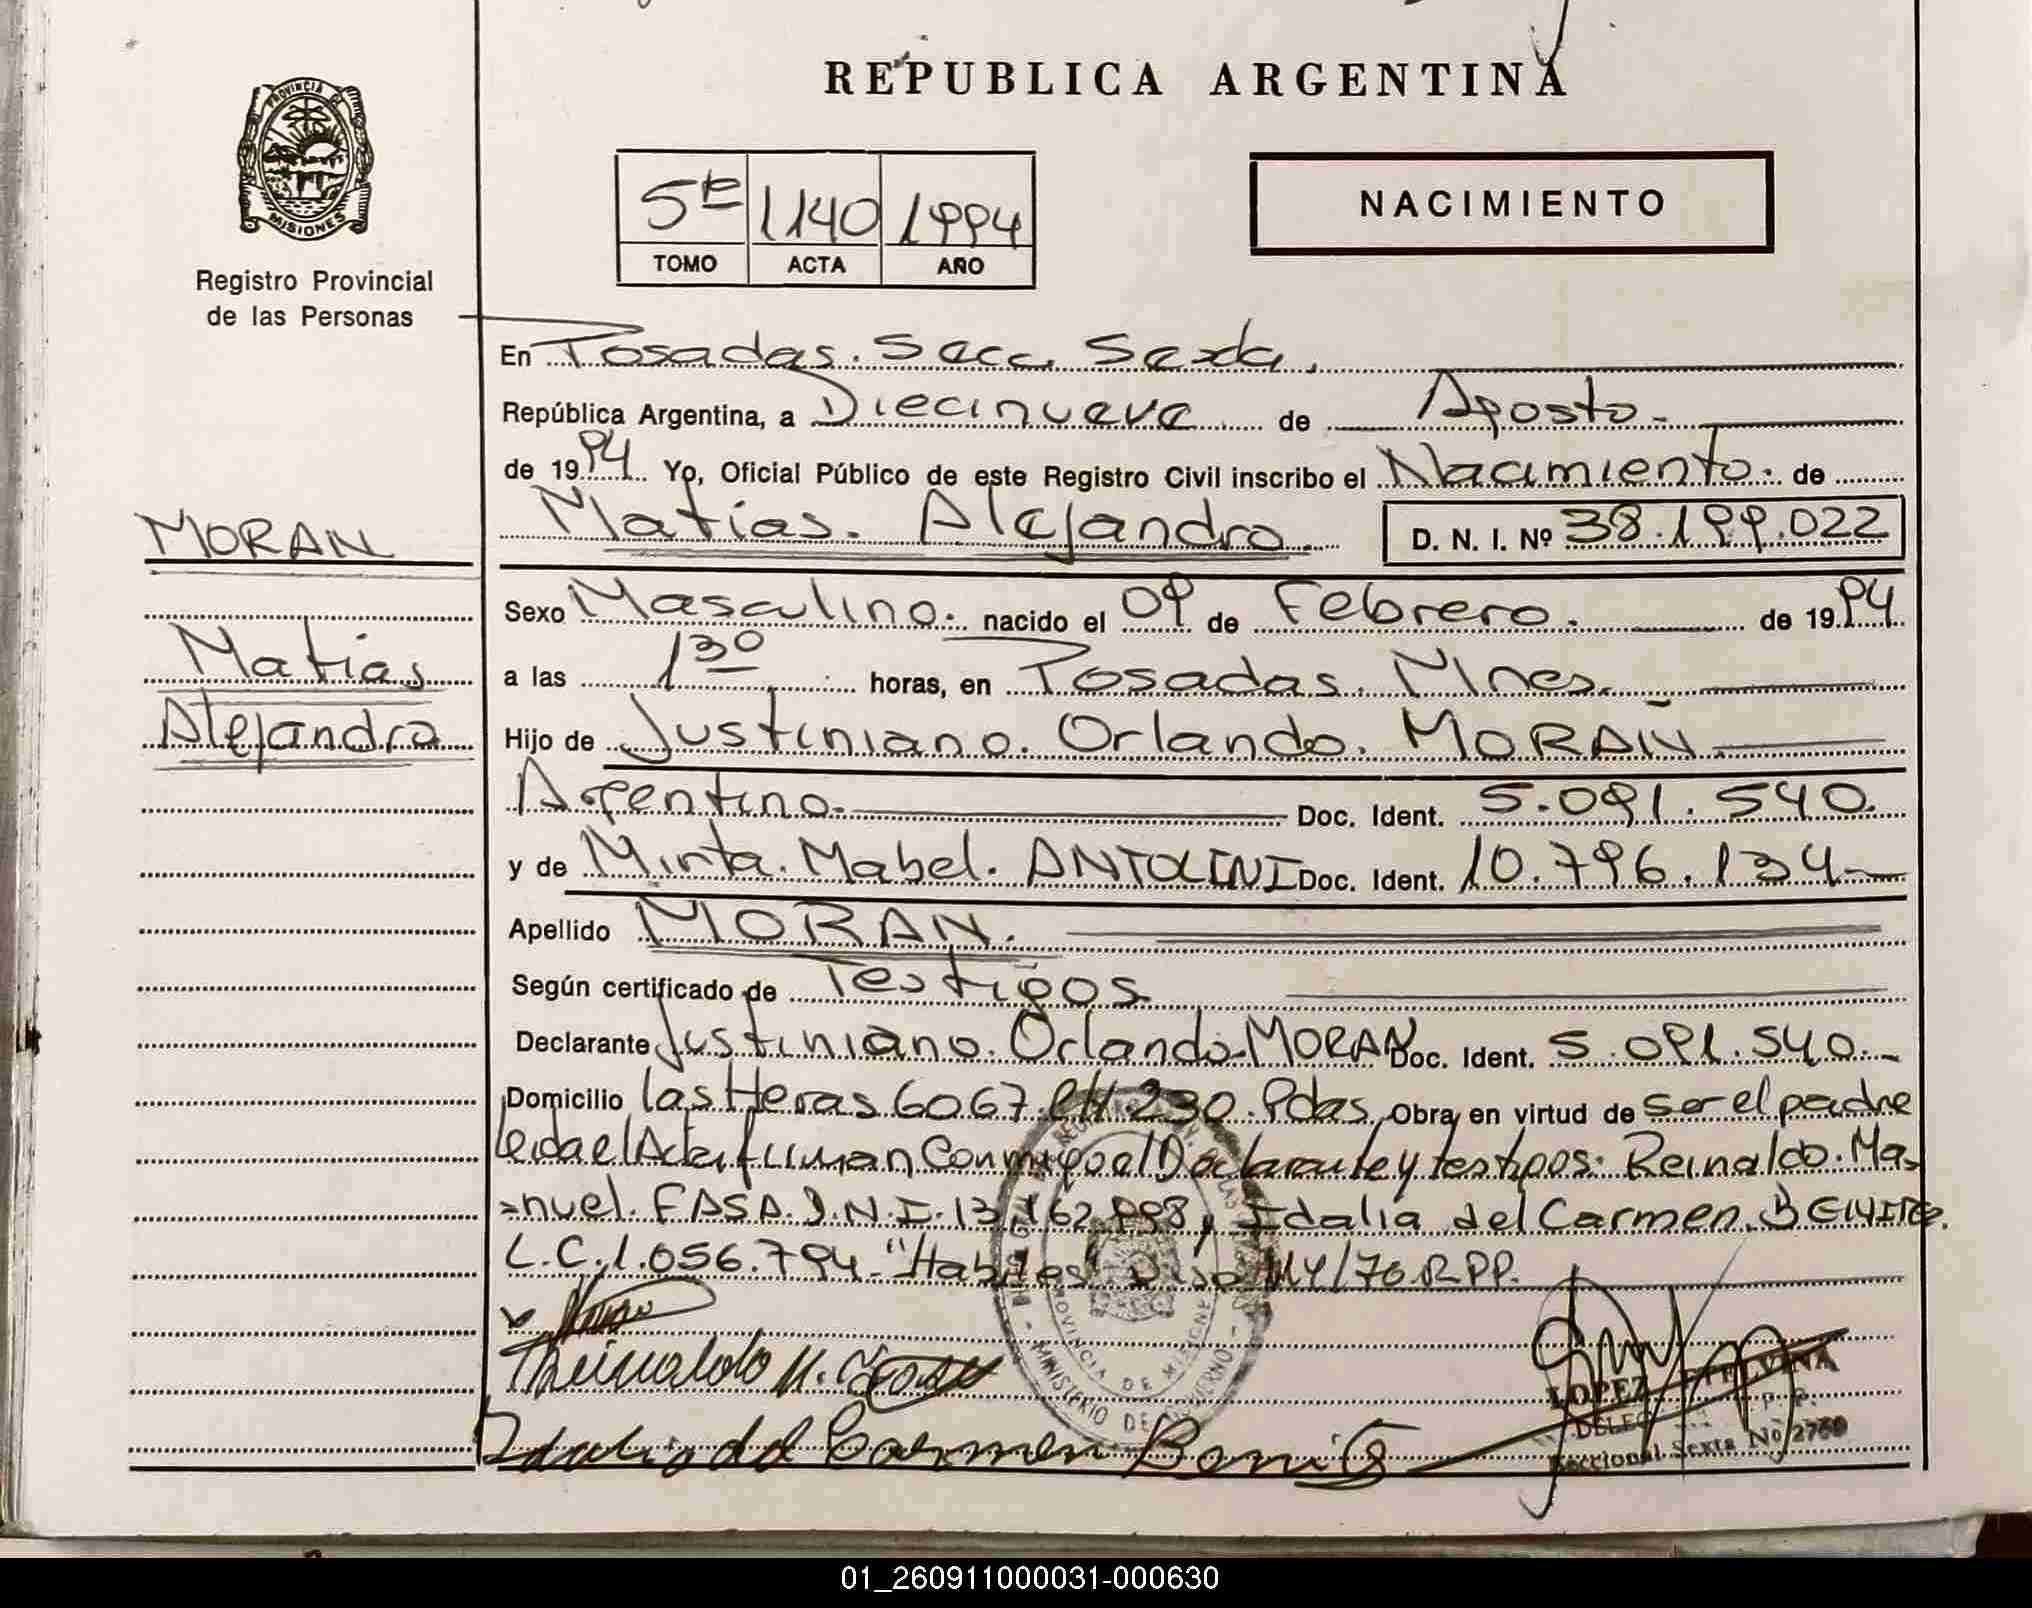 REPUBLICA ARGENTINA
PROVINCIA DE
MISIONES
Registro Provincial
de las Personas
5te 1140 1994
TOMO ACTA AÑO
NACIMIENTO
En Posadas. Secc. Sexta.
República Argentina, a Diecinueve de Agosto.
de 1994. Yo, Oficial Público de este Registro Civil inscribo el Nacimiento. de
Matías. Alejandro. D. N. I. Nº 38.199.022
MORAN
Matías
Alejandro
Sexo Masculino. nacido el 09 de Febrero. de 1994
a las 1 30 horas, en Posadas. Mnes.
Hijo de Justiniano. Orlando. MORAN
Argentino. Doc. Ident. 5.091.540.
y de Mirta. Mabel. ANTOLINI Doc. Ident. 10.796.134
Apellido MORAN.
Según certificado de Testigos
Declarante Justiniano. Orlando. MORAN Doc. Ident. 5.091.540.
Domicilio las Heras 6067. CH. 230. Pdas. Obra en virtud de ser el padre
leida el Acta firman conmigo el Declarante y testigos. Reinaldo. Ma-
nuel. FASA. D.N.I. 13.162.998, Idalia del Carmen. BENITEZ.
L.C. 1.056.794. "Habiles" Disp 114/70.RPP.
Reinaldo M.
Idalia del Carmen
MINISTERIO DE GOBIERNO
PROVINCIA DE MISIONES
LOPEZ
Seccional Sexta Nº 2760
01_260911000031-000630